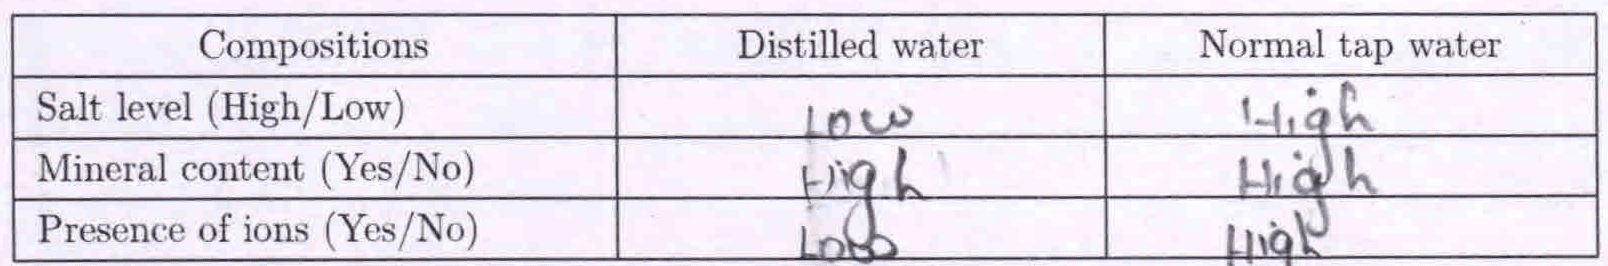 Compositions Distilled water Normal tap water
Salt level (High/Low) Low High
Mineral content (Yes/No) High High
Presence of ions (Yes/No) Low High